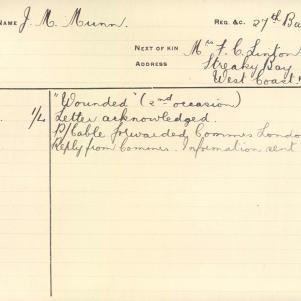 NAME J. M. Munn. REG. &C. 27th Ba
NEXT OF KIN Mrs F. C. Linton
ADDRESS Streaky Bay
West Coast.
"Wounded" (2nd occasion)
1/4 Letter acknowledged.
P/Cable forwarded Commes London
Reply from Commes. Information sent